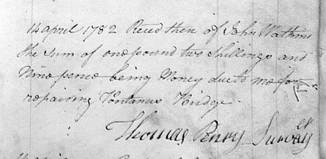 14 April 1782 Recd then of John Watkins
the sum of one pound two Shillings and
Nine pence being Money due to me for
repairing Pontanus Bridge
Thomas Penry Survey